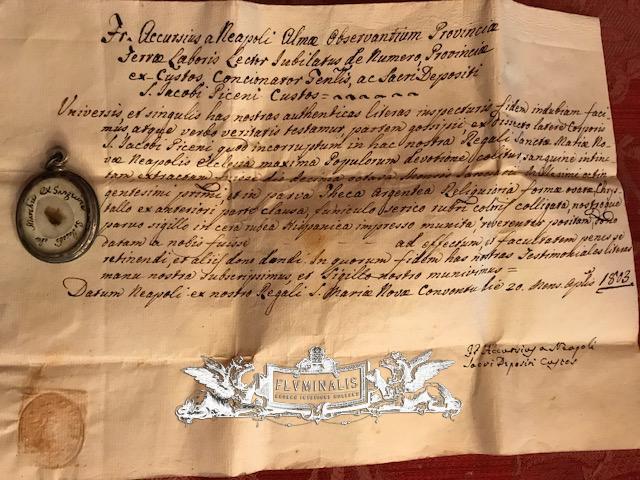 Fr. Accursius a Neapoli Almæ Observantium Provinciæ
Terræ Laboris Lector Jubilatus de Numero, Provinciæ
ex-Custos, Concionator Gen.lis, ac Sacri Depositi
S. Jacobi Piceni Custos
Universis, et singulis has nostras authenticas literas inspecturis fidem indubiam faci-
mus atque verbo veritatis testamur, partem gossipii ex dissecto latere Corporis
S. Jacobi Piceni quod incorruptum in hac nostra Regali Sanctæ Mariæ No-
væ Neapolis ecclesia maxima Populorum devotione colitur, sanguine intinc-
tam extractam
gentesimi primi, et in parva Theca argentea Religiosa formæ ovatæ Chrys-
tallo ex anteriori parte clausa, funiculo serico rubri coloris colligata, nostroque
parvo sigillo in cera rubea Hispanica impresso munita reverenter positam,
datam a nobis fuisse ad effectum, et facultatem penes se
retinendi et aliis dono dandi. In quorum fidem has nostras Testimoniales literas
manu nostra subscripsimus, et Sigillo nostro munivimus=
Datum Neapoli ex nostro Regali S. Mariæ Novæ Conventu die 20. Mens. Aplis 1803
Fr. Accursius a Neapoli
Sacri Depositi Custos
ex Sanguine
FLVMINALIS